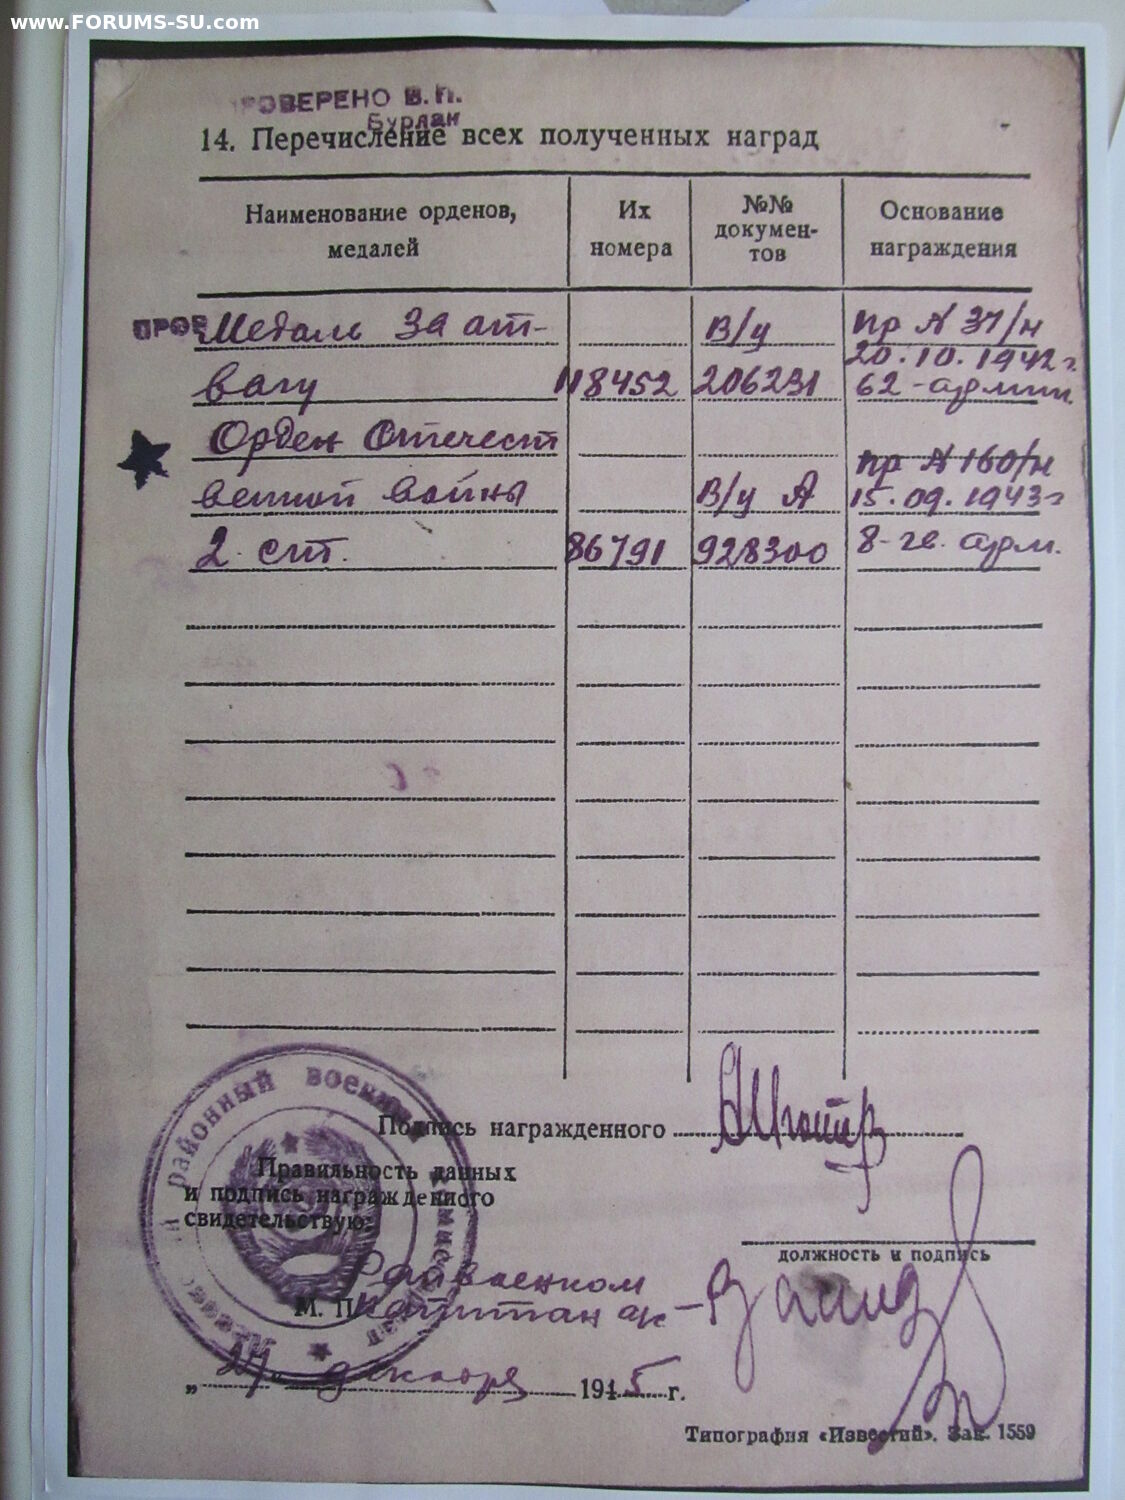 www.FORUMS-SU.com
ПРОВЕРЕНО В. П.
Бурлан
14. Перечисление всех полученных наград
Наименование орденов, медалей
Их номера
№№ докумен-тов
Основание награждения
ПРОВ Медаль За от- В/у пр № 37/н
20.10.1942 г.
вагу 118452 206231 62-армии
Орден Отечест
венной войны В/у А пр № 160/н
15.09.1943 г
2 ст. 86791 928300 8-гв. арм.
районный военный
Подпись награжденного
Правильность данных
и подпись награжденного
свидетельствую:
должность и подпись
Райвоенком
М. П. Капитан а/с
„24“ декабря 1945 г.
Типография «Известий». Зак. 1559